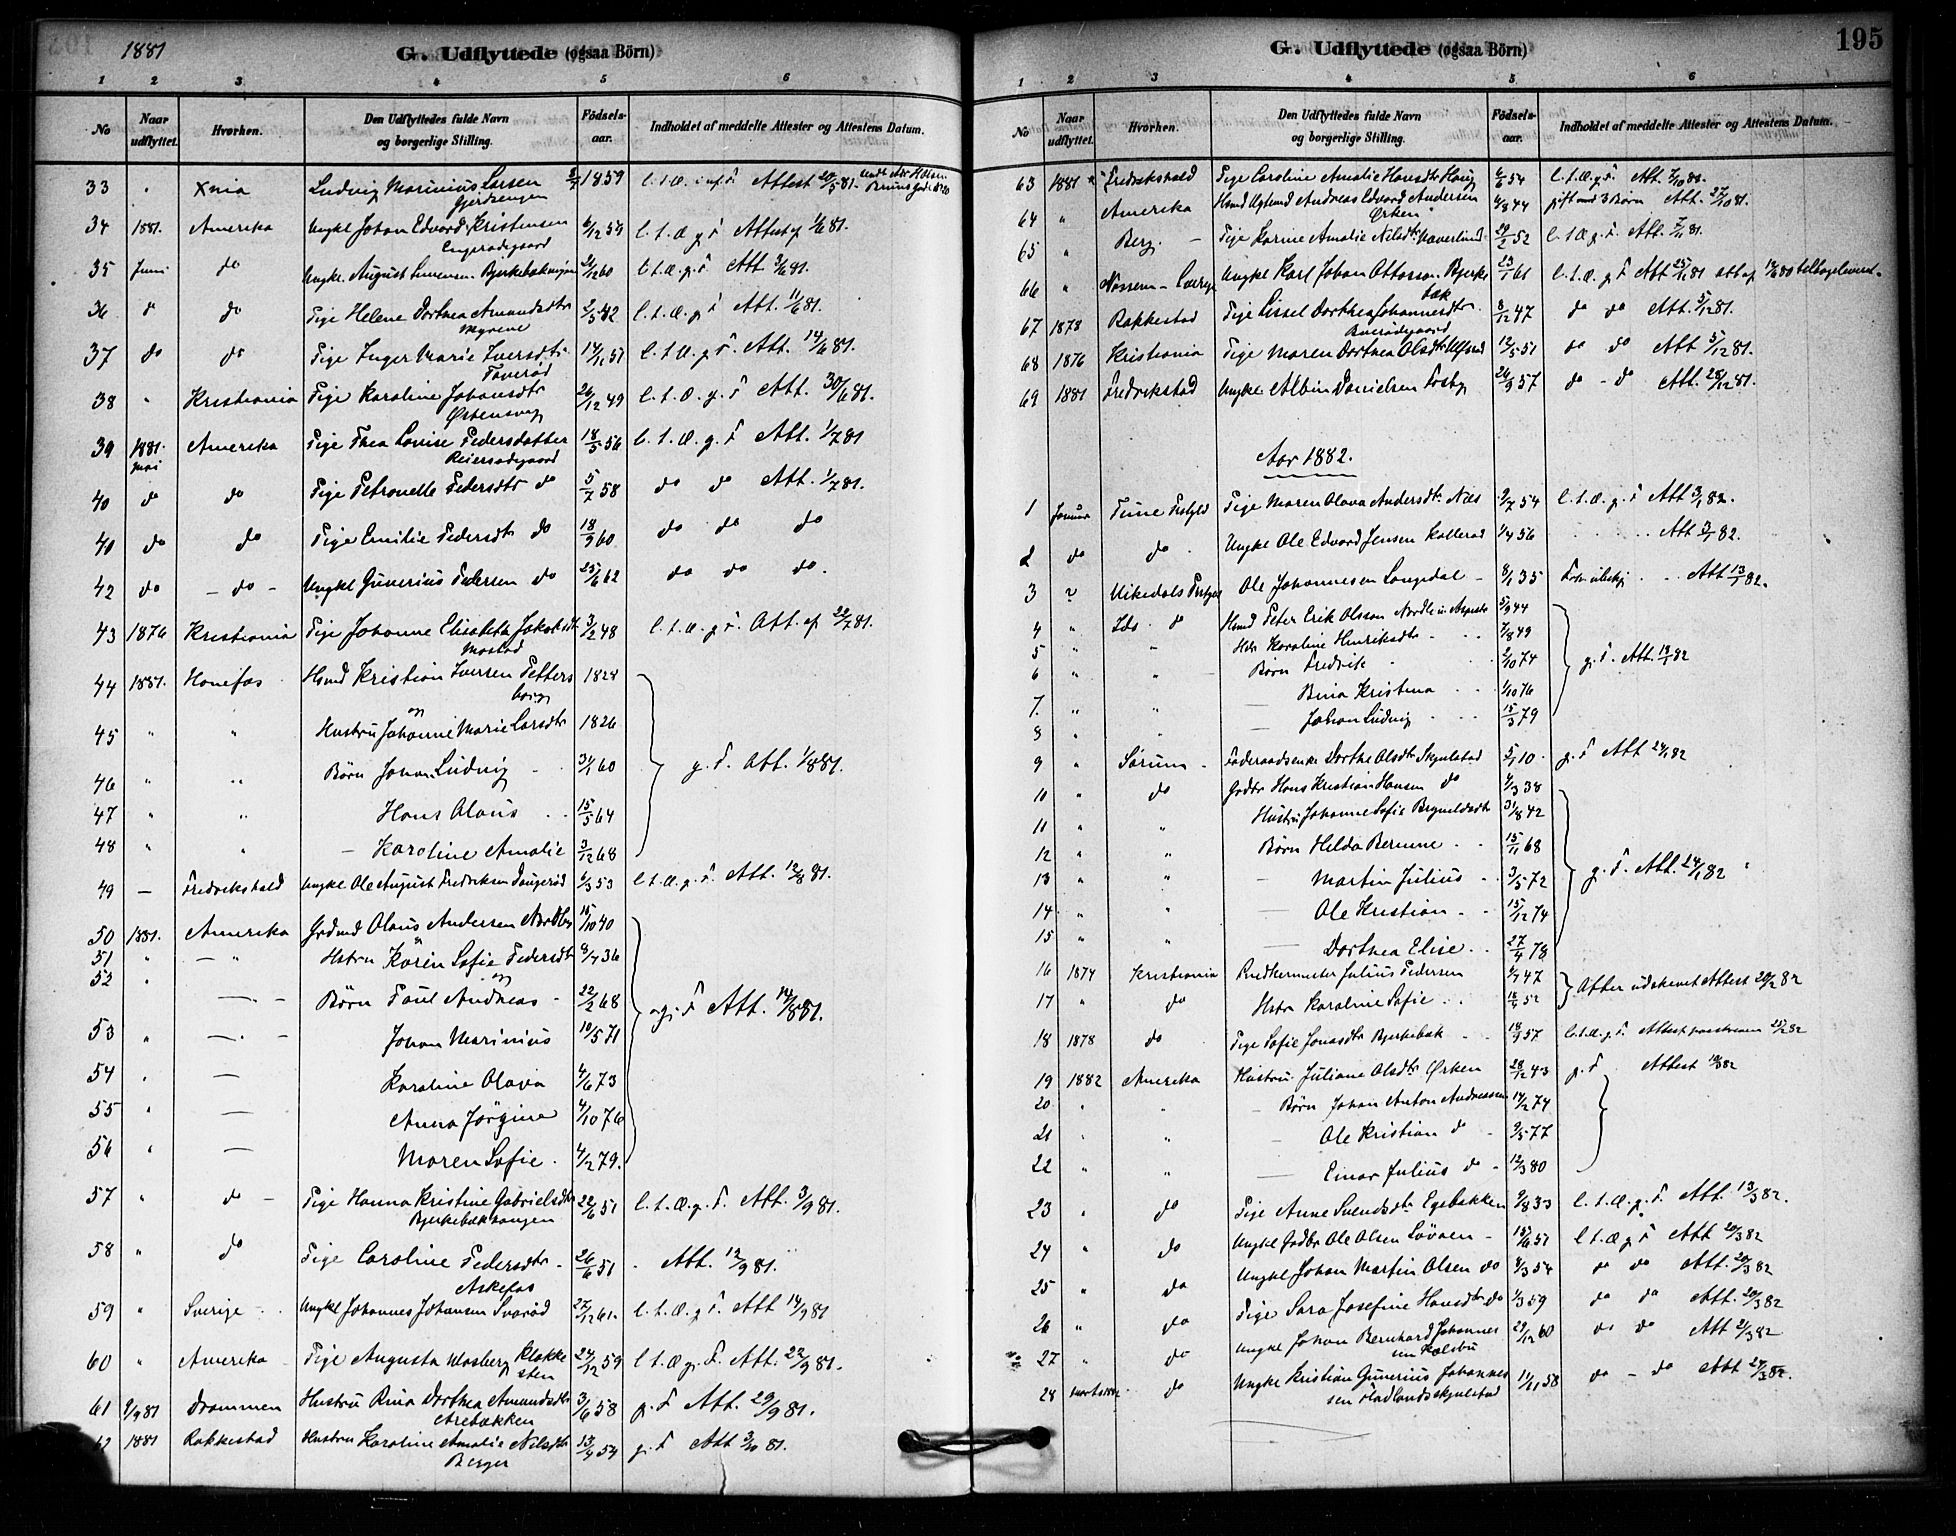 1881
G. Udflyttede (ogsaa Börn)
1 2 3 4 5 6
No
Naar udflyttet.
Hvorhen.
Den Udflyttedes fulde Navn og borgerlige Stilling.
Födsels-aar.
Indholdet af meddelte Attester og Attestens Datum.
33 " Xnia Ludvig Marinius Larsen 1859
Gjerdsengen
34 1881. Amerika Ungkl Johan Edvard Kristensen 6/12 59
35 Juni do Ungk. August 60
36 d do Pige Helene Dorthea Amundsdtr 2/5 42 l.t.æ.g.F. Att. 11/6 81.
Myrene
37 do do Pige Inger Marie Iversdtr 14/11 51 l.t.æ.g.F. Att. 14/6 81.
Taverød
38 " Kristiania Pige Karoline Johansdtr 26/12 49 l.t.æ.g.F. Att. 30/6 81.
39 1881. Mai Amerika Pige Thea Lovise Pedersdatter 18/5 56 l.t.æ.g.F. Att. 1/7 81
40 do do Pige Petronelle Pedersdtr do 5/7 58 do do Att. 1/7 81.
40 do do Pige Emilie Pedersdtr do 18/9 60 do do do
42 do - do - Ungkl Gunerius Pedersen do 25/6 62 do do do.
43 1876 Kristiania Pige Johanne Elisabeth Jakobsdtr 3/2 48 l.t.æ.g.F. Att. af 22/7 81.
44 1881. Honefos Hsmd Kristian Iversen Petters 1824
borg
45 " " Hustru Johanne Marie Larsdtr 1826
46 " " Börn Johan Ludvig 31/1 60 g.F. Att. 1/8 81.
47 " " Hans Olaus 15/5 64
48 " " - Karoline Amalie 3/12 68
49 — Fredrikshald Ungkl. Ole August Fredriksen 6/3 53 l.t.æ.g.F. Att. 12/8 81.
50 1881. Amerika Grdmd Olaus Andersen Nordby 15/10 40
51 " — " Hstru Karen Sofie Pedersdtr 8/7 36
52 Börn Paul Andreas 22/2 68 g.F. Att. 14/8 81.
53 " Johan Marinius 10/5 71
54 " — Karoline Olava 4/6 73
55 " — Anna Jörgine 4/10 76
56 " — Maren Sofie. 4/2 79.
57 " do - Pige Hanna Kristine Gabrielsdtr 22/6 51 l.t.æ.g.F. Att. 3/9 81.
58 " do Pige Caroline Pedersdtr. 26/6 51 - Att. 12/9 81.
Askefos
59 " Sverige Ungkl Johannes Johansen Svarød 27/12 61. l.t.æ.g.F. Att 14/9 81
60 " Amerika Pige Augusta Mosberg Klokke 24/12 59 l.t.æ.g.F. Att. 22/9 81.
sten
61 9/9 81 Drammen Hustru Rina Dorthea Amundsdtr 3/6 58 g.F. Att. 29/9 81.
Arebækken
62 1881 Rakkestad Hustru Karoline Amalie Nilsdtr 13/4 54 g.F Att 3/10 81.
Berger
G. Udflyttede (ogsaa Börn)
195
1 2 3 4 5 6
No
Naar udflyttet.
Hvorhen.
Den Udflyttedes fulde Navn og borgerlige Stilling.
Födsels-aar.
Indholdet af meddelte Attester og Attestens Datum.
63 1881 Fredrikshald Pige Caroline Amalie Hansdtr 6/6 54 l.t.æ.g.F. Att. 7/10 81.
64 " Amerika Andreas Edvard Andersen 4/8 44 gift med 3 Børn Att. 27/10 81.
Ørken
65 " Berg. - Pige Karine Amalie Nilsdtr 20/2 52 l.t.æ.g.F. Att. 7/11 81.
66 " Ungkl Karl Johan Ottosson Bjerke 23/1 61 l.t.æ.g.F Att 25/11 81
bæk
67 1878 Rakkestad Pige Lissel Dorthea Johannesdtr 8/12 47 do do Att. 5/12 81.
68 1876 Kristiania Pige Maren Dorthea Olsdtr 12/5 51 do do Att 5/12 81.
69 1881 Fredrikstad Ungkl Albin Danielsen Fosby 26/9 57 do - do Att. 28/12 81.
Aar 1882.
1 Januar Tune Prstgld Pige Maren Olava Andersdtr Næs 9/7 54 l.t.æ.g.F Att 3/1 82.
2 do do. Ungkl Ole Edvard Jensen Kallerød 1/4 56 Att 3/1 82.
3 " Ole Johannesen Langedal - 8/1 35 Att 13/1 82.
4 " Ids do Hsmd Peter Erik Olsson 5/9 44
5 " " Hstr Karoline Henriksdtr 7/8 49
6 " " Börn Fredrik 2/10 74 g.F. Att. 18/1 82
7. " " — Bina Kristina 1/10 76
8 " " — Johan Ludvig 15/3 79
9 " Sörum - Föderaadsenke Dorthe Olsdtr Skjulstad 5/1 10 g.F Att 24/1 82
10 " do Grdbr Hans Kristian Hansen do 4/3 38
11 " " Hustru Johanne Sofie Brynildsdtr 31/8 42
12 " " Börn Hilda Bernine 15/11 68
13 " " — Martin Julius 3/5 72 g.F. Att. 24/1 82
14 " " — Ole Kristian 15/12 74
15 " " — Dorthea Elise 27/4 78
16 1874 Kristiania Julius Pedersen 9/7 47 Atter udskrevet Attest 20/2 82
17 " do Hstr Karoline Sofie 52
18 1878 do Pige Sofie Jonasdtr Bjerkebæk 18/9 57 l.t.æ.g.F. Attest 25/2 82
19 1882 Amerika Hustru Juliane Olsdtr Ørken 28/12 43 g.F. Attest 10/3 82
20 " " - Börn Johan Anton Andreassen 14/2 74
21 " " — Ole Kristian do 9/5 77
22 " " — Einar Julius do 12/3 80
23 " do Pige Anne Svendsdtr Egebakken 9/8 33 l.t.æ.g.F. Att. 13/3 82.
24 " do Ungkl Grdbr Ole Olsen Løvaen - 15/6 51 l.t.æ.g.F Att 20/3 82
25 " do Ungkl Johan Martin Olsen do 4/3 54 do do Att. 20/3 82
26 " do Pige Sara Josefine Hansdtr do 1/3 59 do do Att. 20/3 82
27 " do Ungkl Johan Bernhard Johannes 29/12 60 do do Att 21/3 82
28 Marts 1882 do Ungkl Kristian Gunerius Johannes 11/11 58 do - do Att 24/3 82.